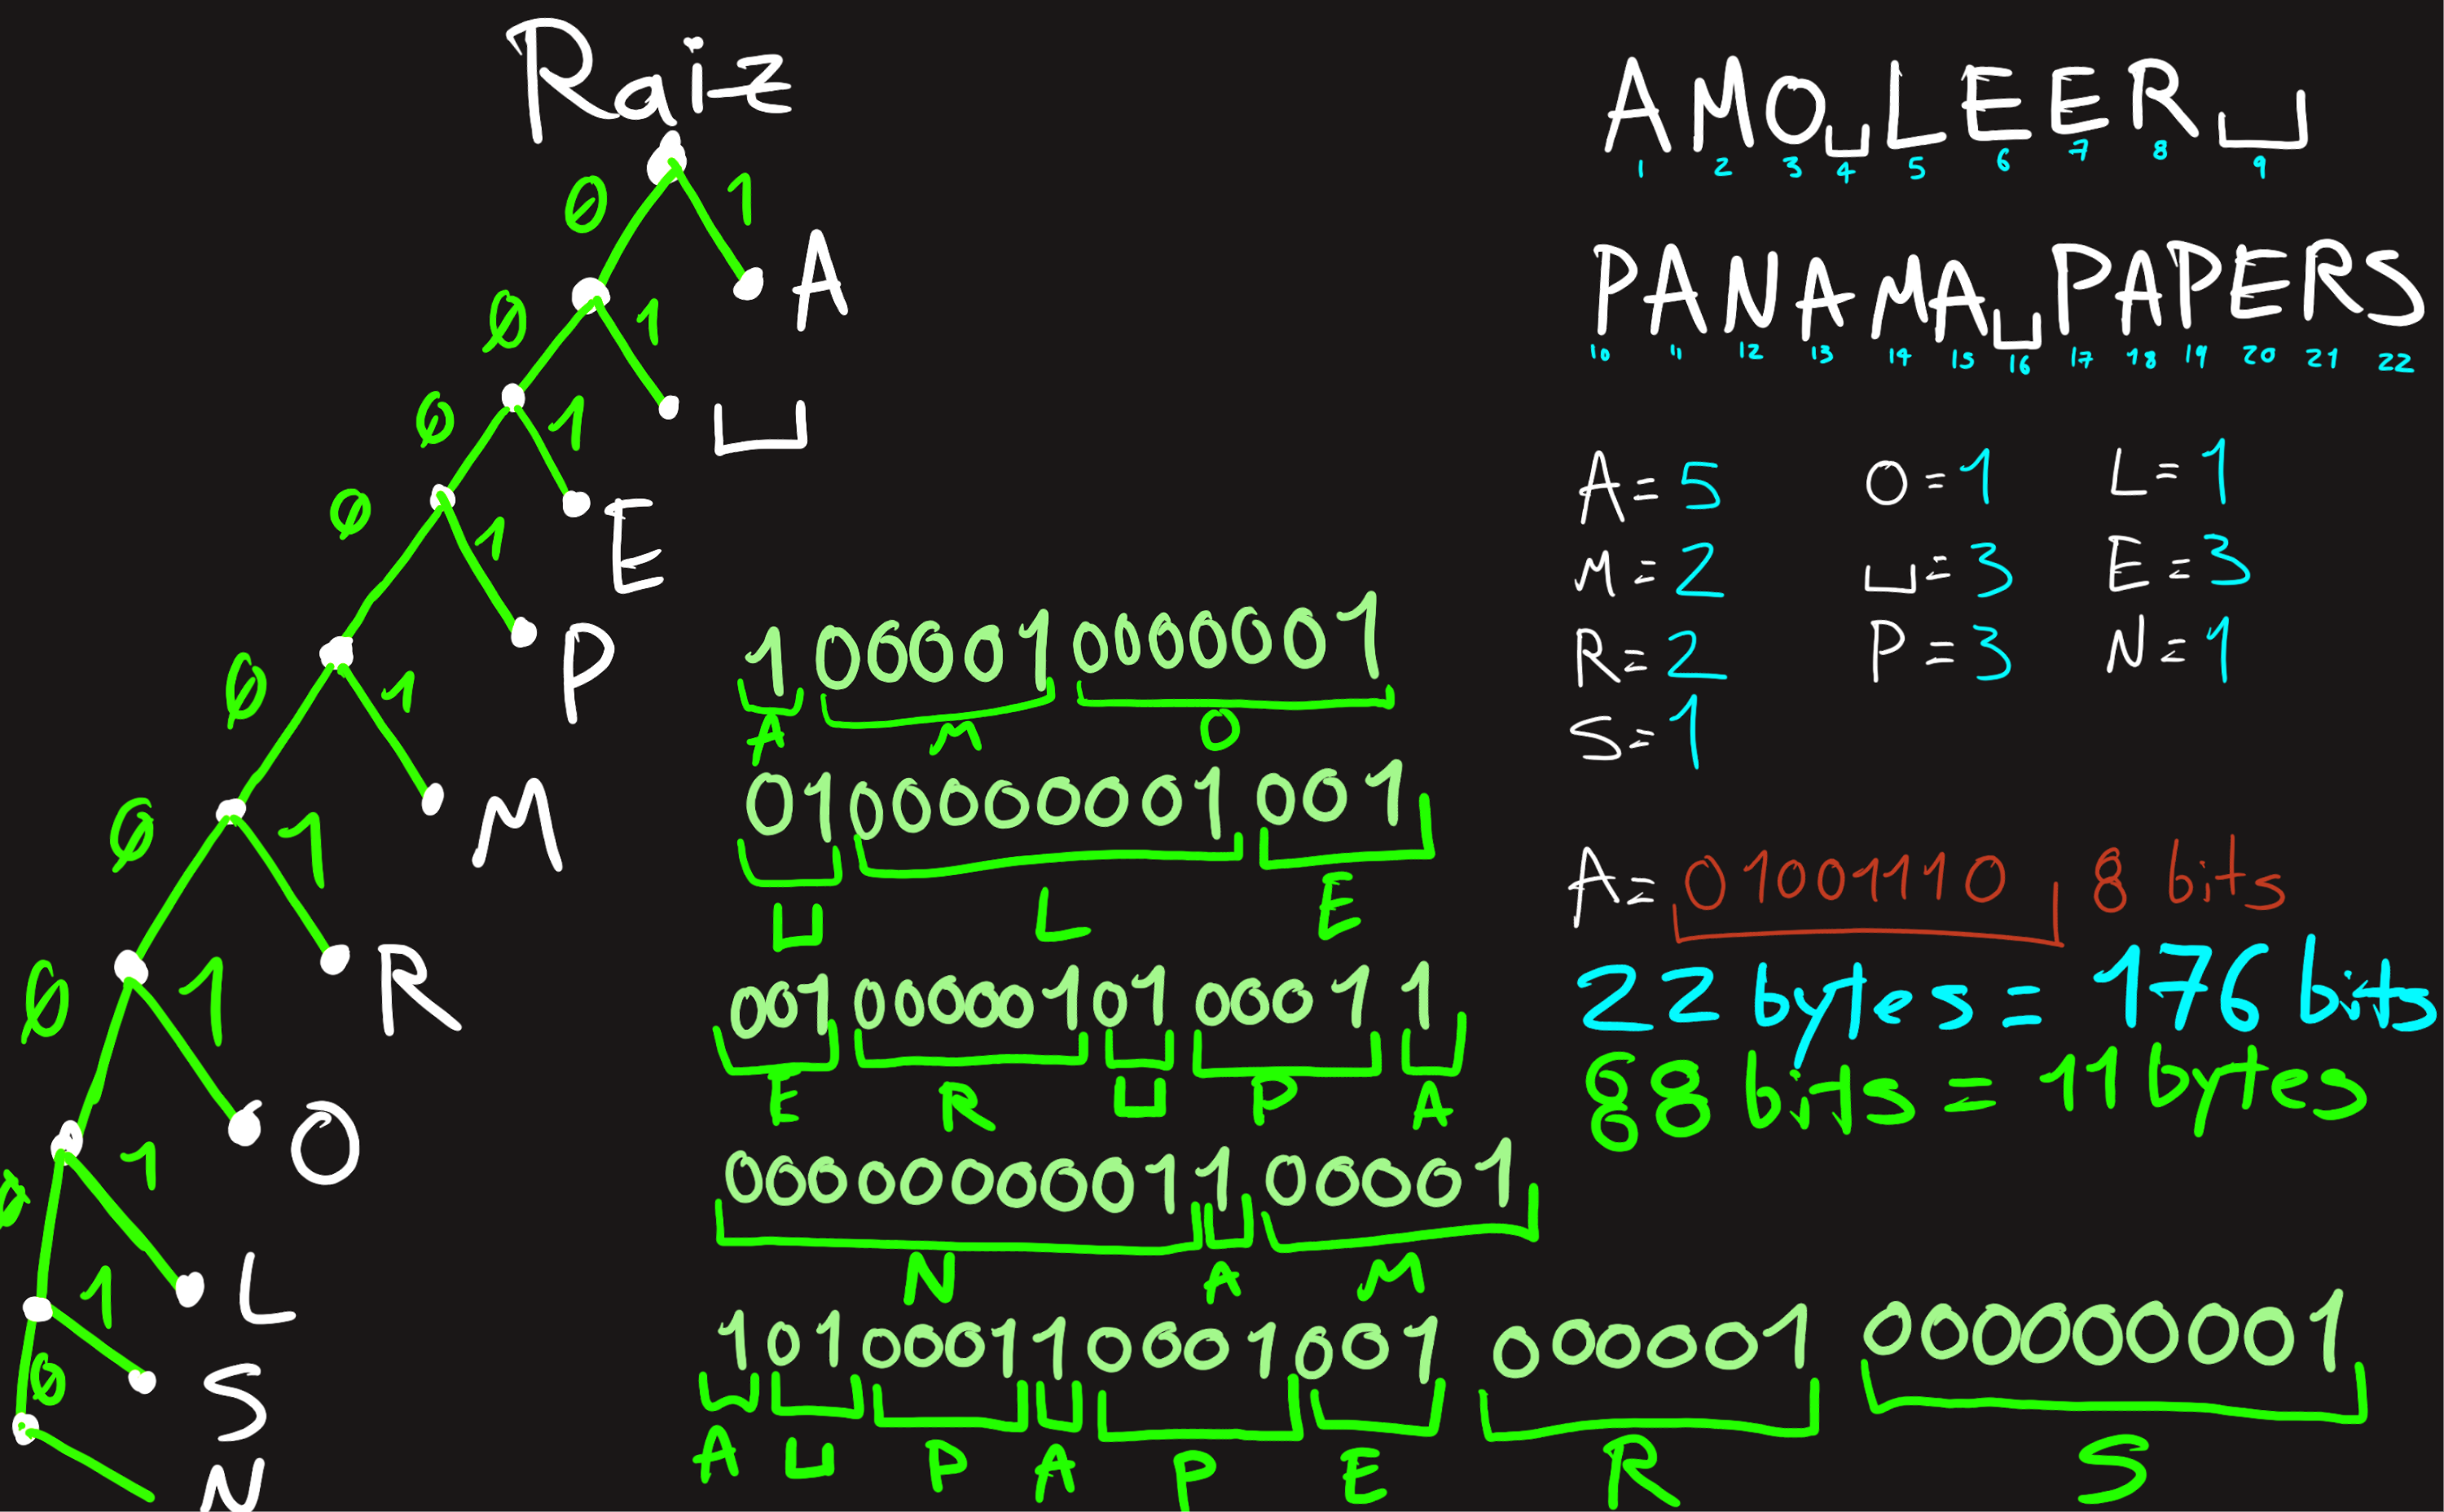 Raiz
0 1
A
0 1
␣
0 1
E
0 1
P
0 1
M
0 1
R
0 1
O
0 1
L
0 1
S
N
AMO␣LEER␣
1 2 3 4 5 6 7 8 9
PANAMA␣PAPERS
10 11 12 13 14 15 16 17 18 19 20 21 22
A=5 O=1 L=1
M=2 ␣=3 E=3
R=2 P=3 N=1
S=1
A=01001110 8 bits
22 bytes = 176 bits
88 bits = 11 bytes
1000010000001
A M O
0100000001001
␣ L E
0010000010100011
E R ␣ P A
0000000001100001
N A M
101000110001001000001000000001
A ␣ P A P E R S